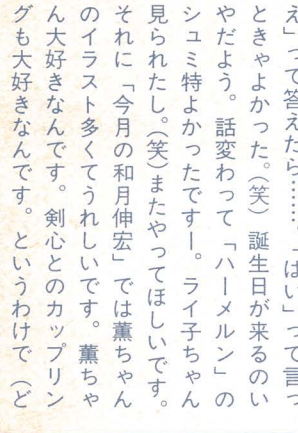 え」って答えたら……。「はい」って言っ
ときゃよかった。(笑) 誕生日が来るのい
やだよう。話変わって「ハーメルン」の
シュミ特よかったですー。ライ子ちゃん
見られたし。(笑)またやってほしいです。
それに「今月の和月伸宏」では薫ちゃん
のイラスト多くてうれしいです。薫ちゃ
ん大好きなんです。剣心とのカップリン
グも大好きなんです。というわけで(ど